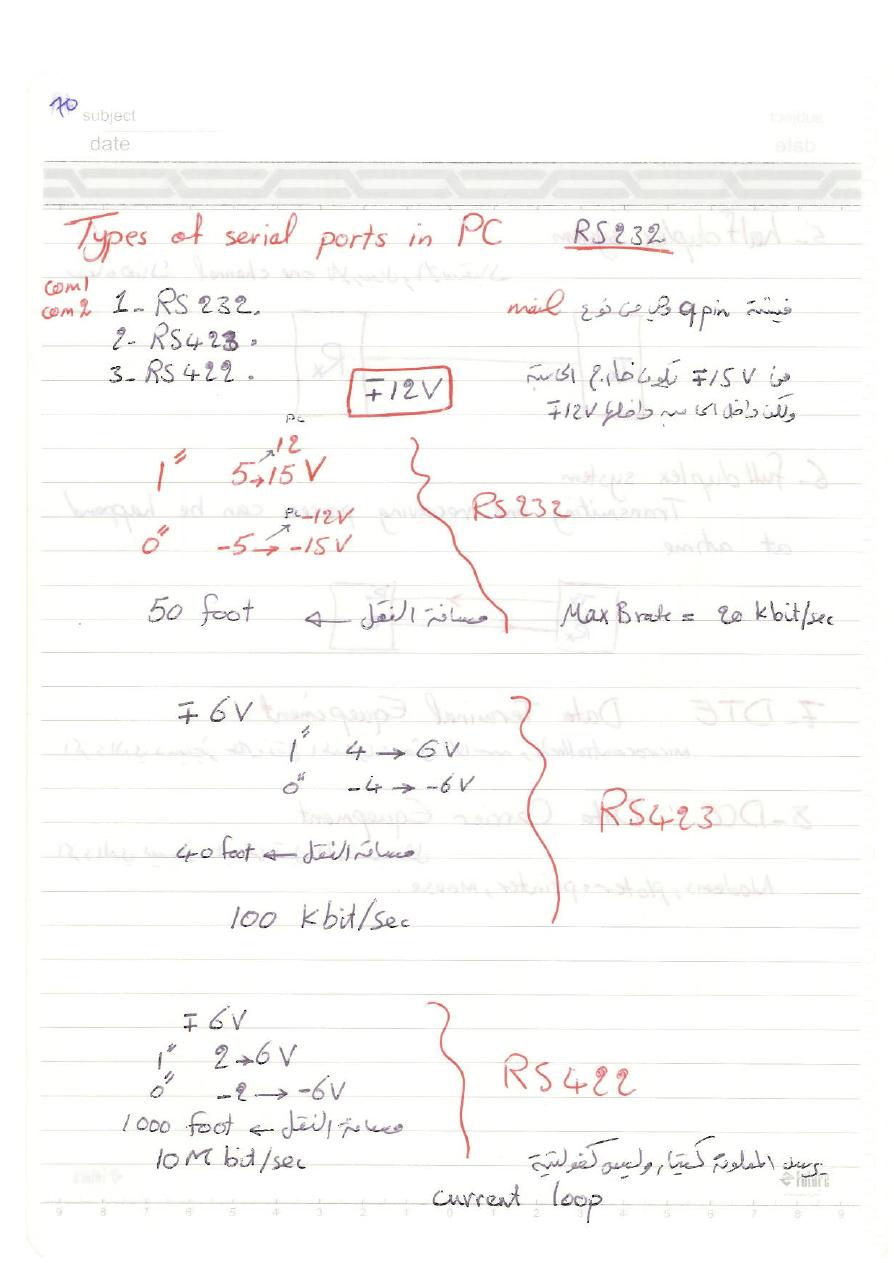 70
subject
date
Types of serial ports in PC RS232
com1
com2
1- RS 232.
2- RS423.
3- RS422.
فيشة 9pin وهي من نوع mail
∓12V
من ∓15V تكون خارج الحاسبة
ولكن داخل الحاسبة داخلها ∓12V
PC
12
1" 5→15 V
PC -12V
0" -5 → -15V
RS232
50 foot ← مسافة النقل
Max Brate = 20 kbit/sec
∓ 6V
1" 4 → 6V
0" -4 → -6V
RS423
40 foot ← مسافة النقل
100 kbit/sec
∓ 6V
1" 2→6V
0" -2 → -6V
RS422
1000 foot ← مسافة النقل
10M bit/sec
يرسل المعلومة كتيار وليس كفولتية
current loop
Future
9 8 7 6 5 4 3 2 1 0 1 2 3 4 5 6 7 8 9